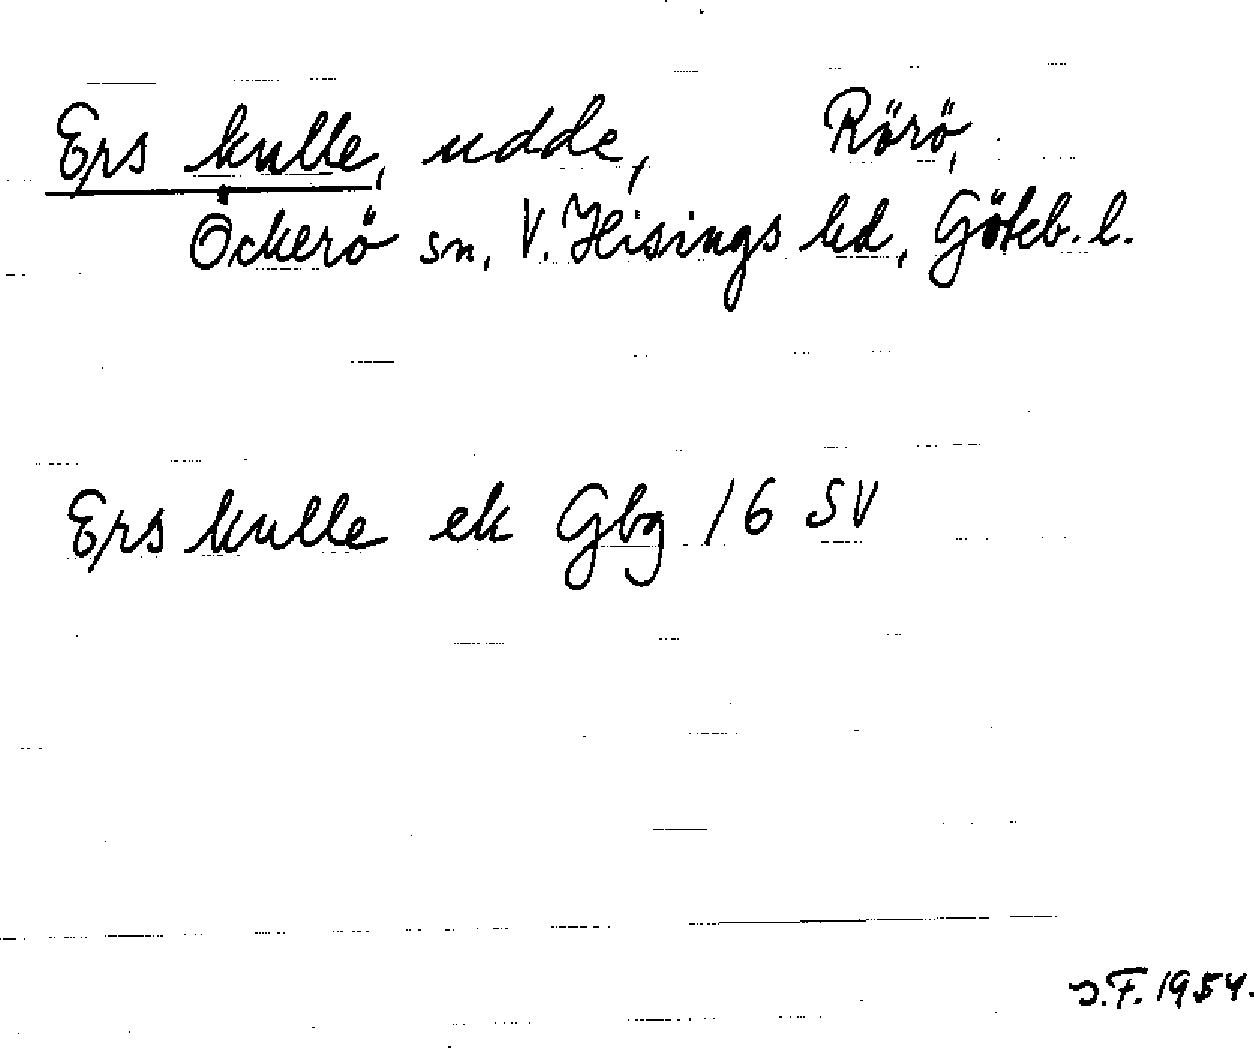 Ers kulle, udde, Rörö,
Öckerö sn, V. Hisings hd, Göteb. l.
Ers kulle ek Gbg 16 SV
J.F. 1954.